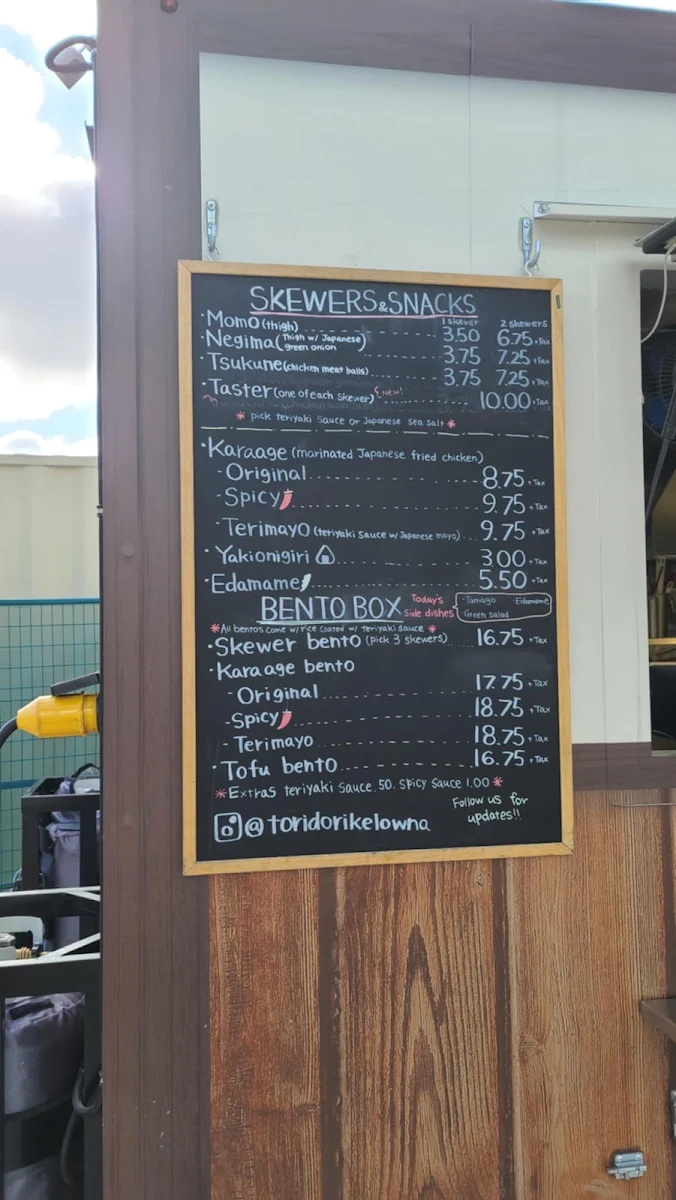 SKEWERS & SNACKS
1 skewer 2 skewers
· Momo (thigh) 3.50 6.75 + Tax
· Negima (Thigh w/ Japanese green onion) 3.75 7.25 + Tax
· Tsukune (chicken meat balls) 3.75 7.25 + Tax
· Taster (one of each skewer) NEW! 10.00 + Tax
* pick teriyaki sauce or Japanese sea salt *
· Karaage (marinated Japanese fried chicken)
- Original 8.75 + Tax
- Spicy 9.75 + Tax
- Terimayo (teriyaki sauce w/ Japanese mayo) 9.75 + Tax
· Yakionigiri 3.00 + Tax
· Edamame 5.50 + Tax
BENTO BOX Today's side dishes · Tamago Edamame Green salad
* All bentos come w/ rice coated w/ teriyaki sauce *
· Skewer bento (pick 3 skewers) 16.75 + Tax
· Karaage bento
- Original 17.75 + Tax
- Spicy 18.75 + Tax
- Terimayo 18.75 + Tax
· Tofu bento 16.75 + Tax
* Extras teriyaki sauce .50. spicy sauce 1.00 *
@toridorikelowna
Follow us for
updates!!